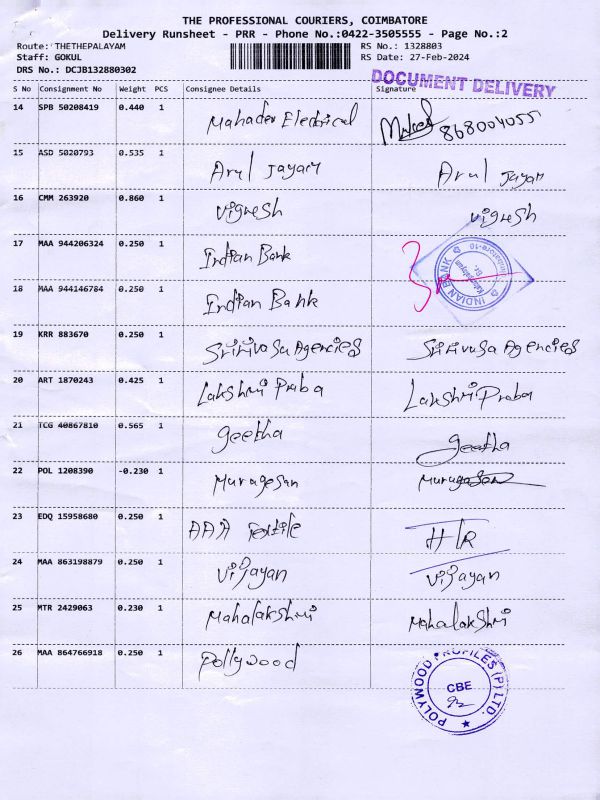 THE PROFESSIONAL COURIERS, COIMBATORE
Delivery Runsheet - PRR - Phone No.:0422-3505555 - Page No.:2
Route: THETHEPALAYAM RS No.: 1328803
Staff: GOKUL RS Date: 27-Feb-2024
DRS No.: DCJB132880302
DOCUMENT DELIVERY
S No Consignment No Weight PCS Consignee Details Signature
14 SPB 50208419 0.440 1 Mahadev Electrical 868004055
15 ASD 5020793 0.535 1 Arul Jayam Arul Jayam
16 CMM 263920 0.860 1 Vignesh Vignesh
17 MAA 944206324 0.250 1 Indian Bank
INDIAN BANK
18 MAA 944146784 0.250 1 Indian Bank
19 KRR 883670 0.250 1 Sririvasa Agencies Sririvasa Agencies
20 ART 1870243 0.425 1 Lakshmi Praba Lakshmi Praba
21 TCG 40867810 0.565 1 geetha geetha
22 POL 1208390 -0.230 1 Murugesan Murugesan
23 EDQ 15958680 0.250 1 AAA Textile
24 MAA 863198879 0.250 1 Vijayan Vijayan
25 MTR 2429063 0.230 1 Mahalakshmi Mahalakshmi
26 MAA 864766918 0.250 1 Pollywood
POLYWOOD PROFILES (P) LTD.
CBE